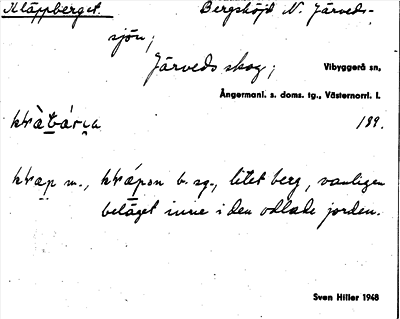 Kläppberget Bergshöjd N. Järveds-
sjön;
Järveds skog; Vibyggerå sn,
Ångermanl. s. doms. tg., Västernorrl. l.
189.
m., b. sg., litet berg, vanligen
beläget inne i den odlade jorden.
Sven Hiller 1948